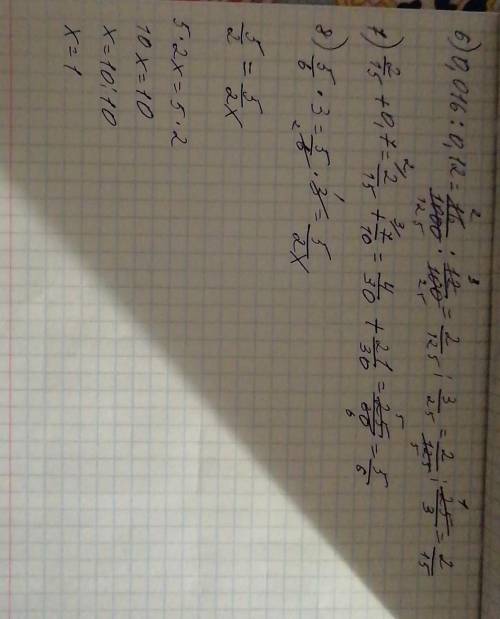 6) 0,016 : 0,12 = 16/1000 : 12/100 = 2/125 : 3/25 = 2/125 · 25/3 = 2/15
7) 2/15 + 0,7 = 2/15 + 7/10 = 4/30 + 21/30 = 25/30 = 5/6
8) 5/6 · 3 = 5/6 · 3 = 5/2x
5/2 = 5/2x
5·2x = 5·2
10x = 10
x = 10:10
x = 1